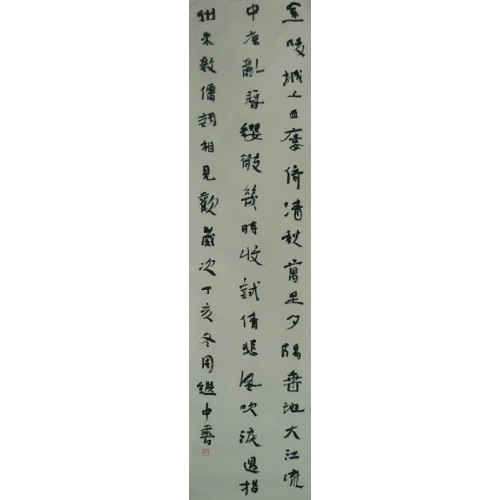 金陵城上西廔倚清秋萬里夕陽垂地大江流
中原亂簪纓散幾時收試倩悲風吹淚過揚
州朱敦儒詞相見歡歲次丁亥冬周繼中書